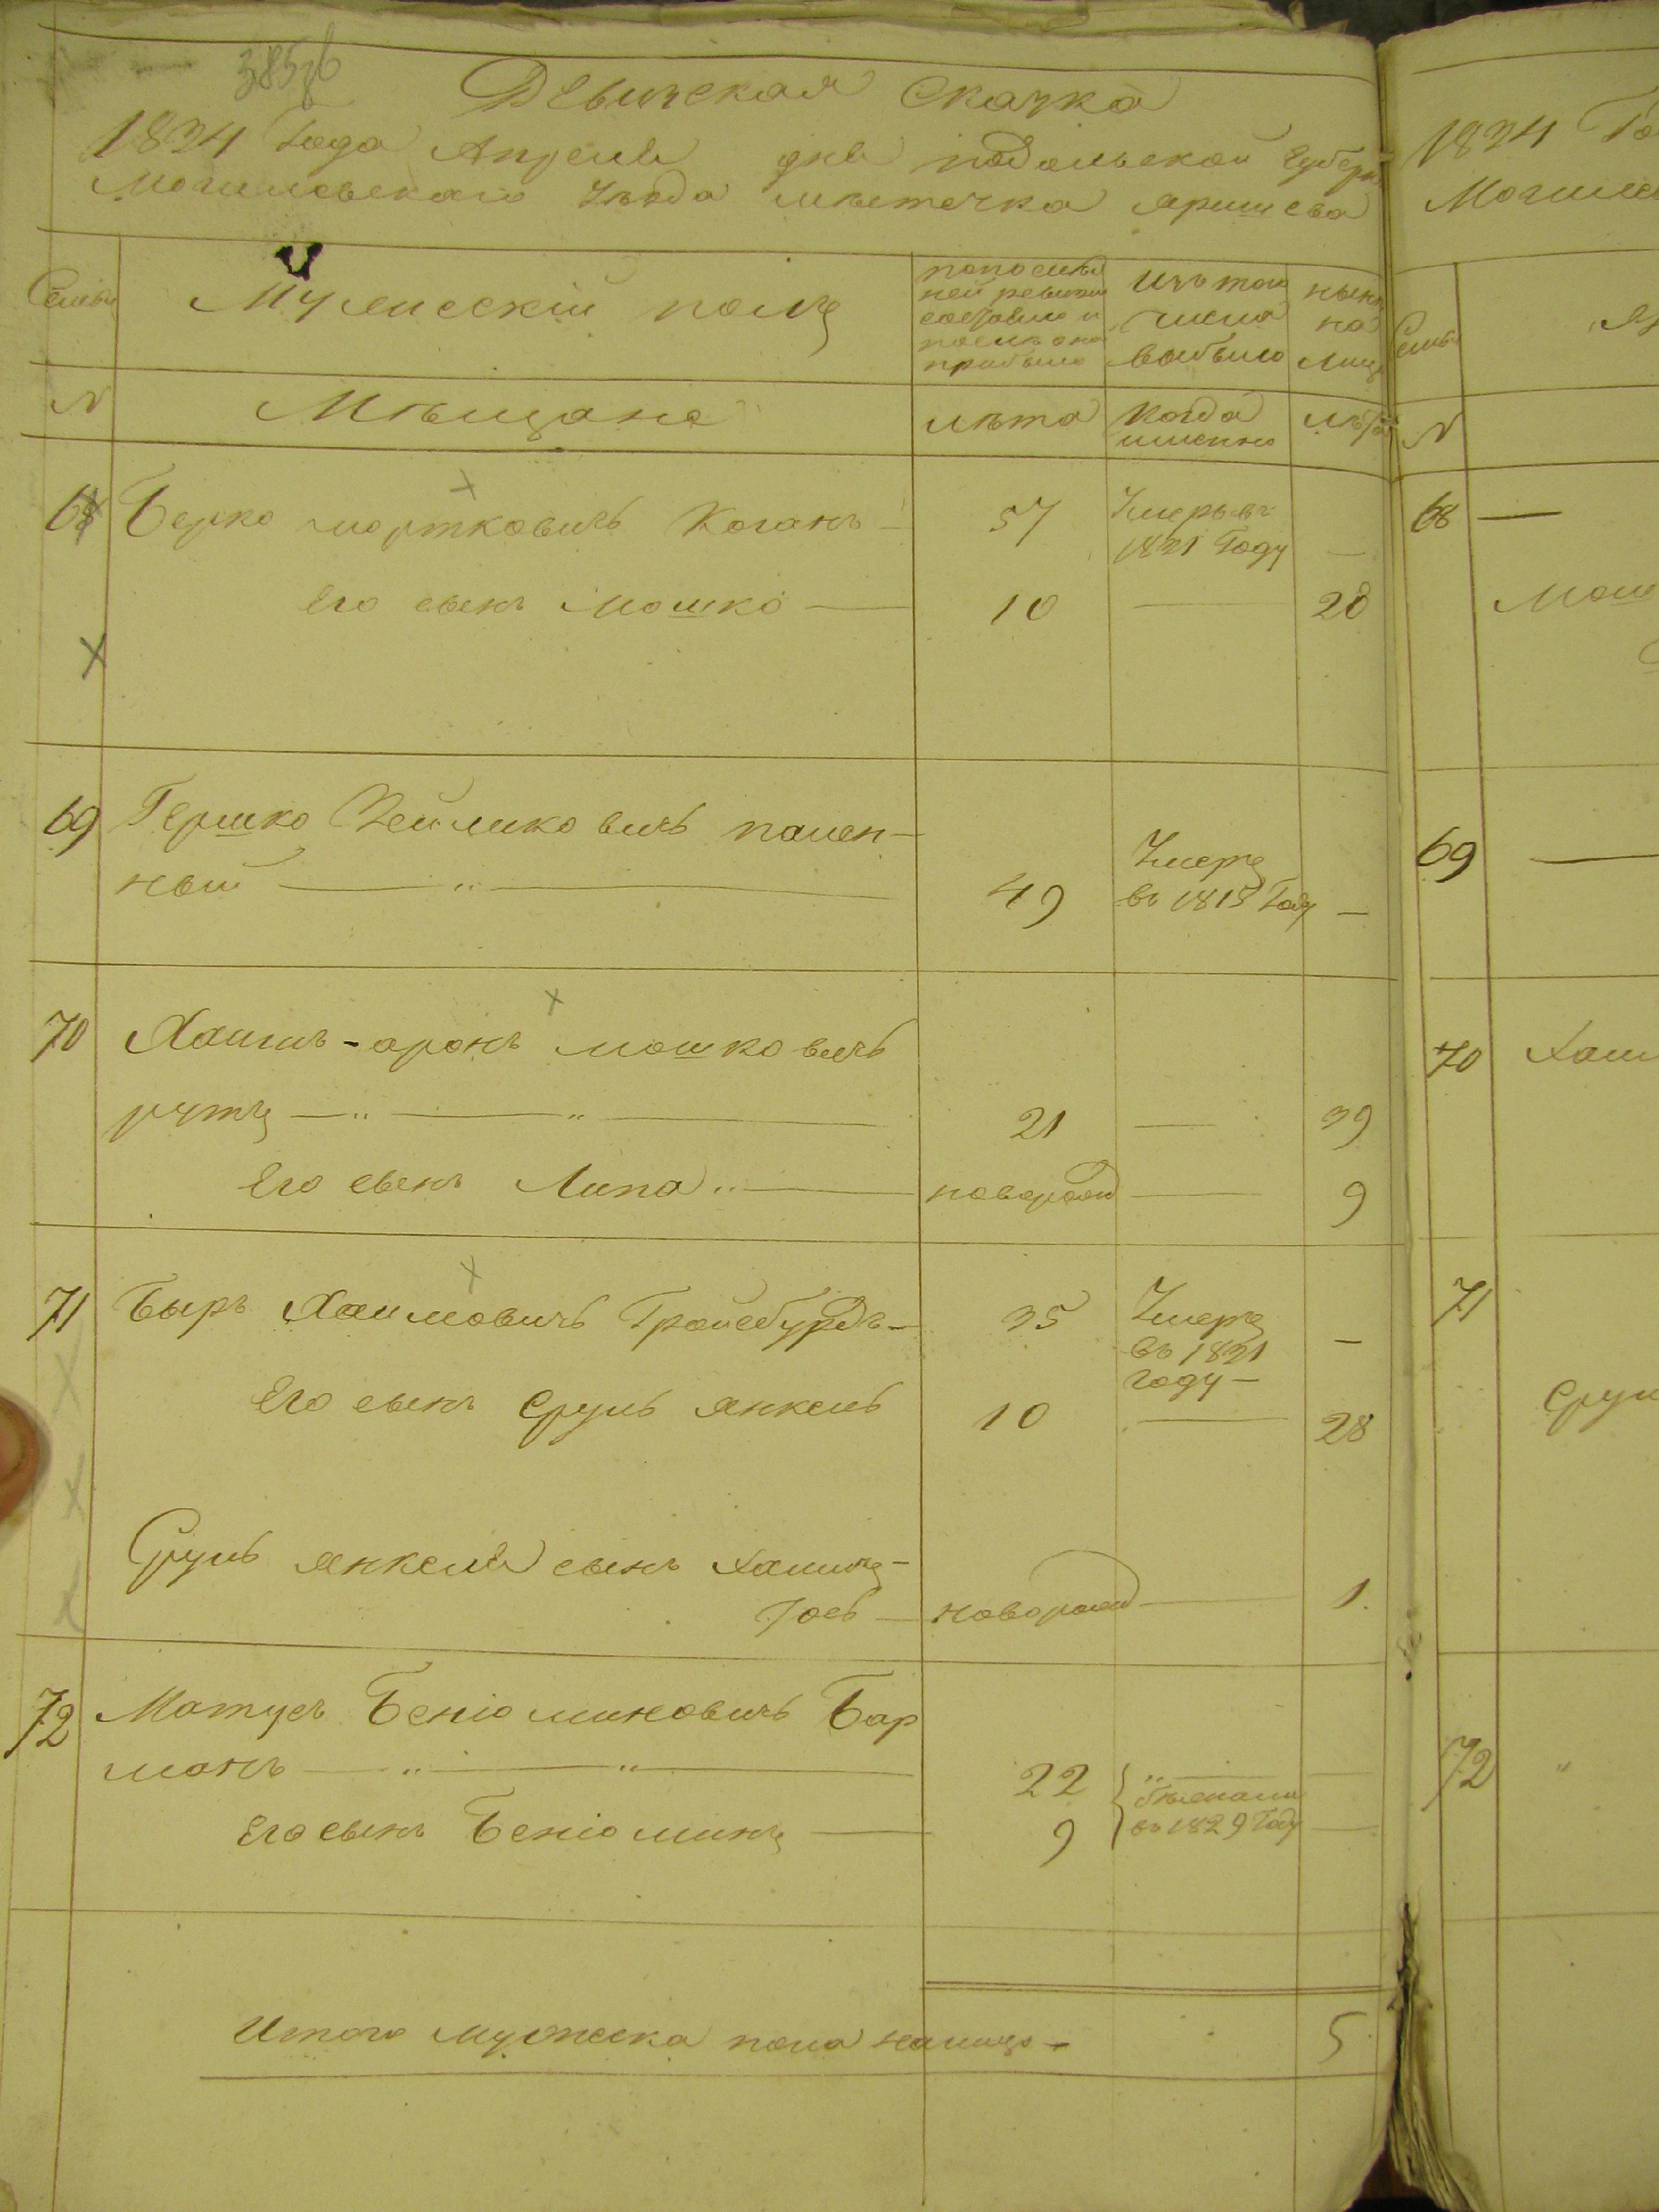 385об
Ревизская Сказка
1834 Года Апреля дня подольской Губерн
Могилевскаго Уезда местечка яришева
Семьи
Мужескій полъ
попослед
ней ревизіи
состояло и
после оной
прибыло
Изъ того
числа
выбыло
ныне
на
лице
N
Мещане
лета
Когда
именно
лета
68 Берко мортковичь Коганъ — 57 Умеръ въ
1821 Году —
Его сынъ Мошко — 10 — 28
69 Гершко Зейликовичь
ный — " — 49 Умеръ
въ 1818 Году —
70 Хаимъ-аронъ мошковичь
рутъ — " — " — 21 — 39
Его сынъ Липа " — новорожд — 9
71 Быръ Хаимовичь Гройсбурдъ — 35 Умеръ
въ 1821 —
году —
Его сынъ Сруль янкель 10 — 28
Сруль янкеля сынъ Хаимъ-
Іось — новорожд — 1
72 Матусъ Беніоминовичь Бар
манъ — " — " — 22 " — —
Его сынъ Беніоминъ — 9 бежали
въ 1829 Году —
Итого мужеска пола налицо — 5
1834 Го
Могилев
Семьи
N
68 —
Мош
69 —
70 Хаим
71
Срул
72 "